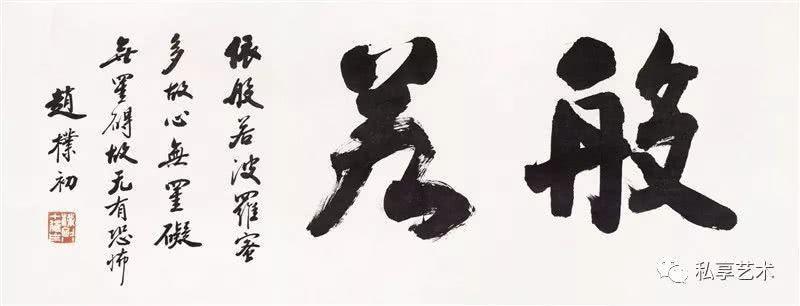 般若
依般若波羅蜜
多故心無罣礙
無罣碍故无有恐怖
趙樸初
私享艺术